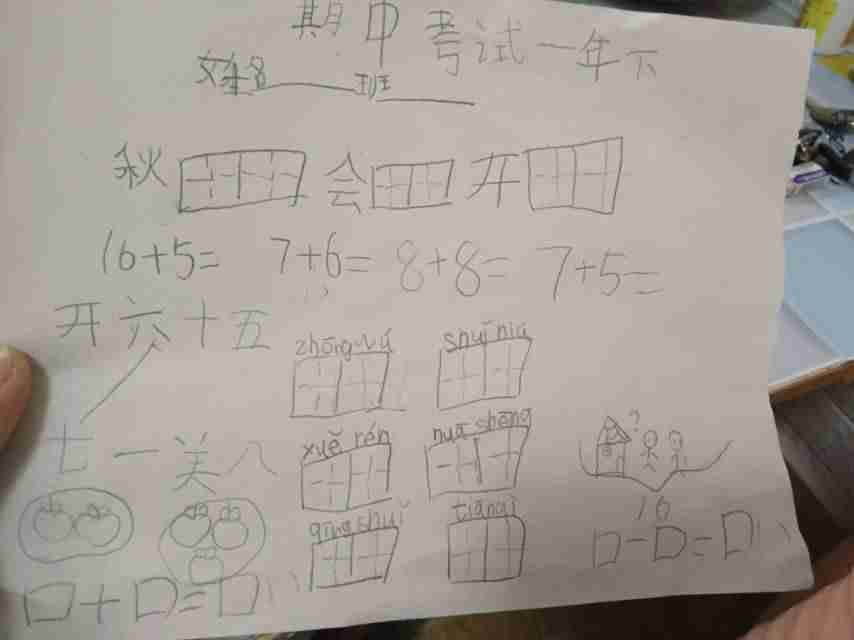 期中考试一年下
姓名 班
秋 会 开
16+5= 7+6= 8+8= 7+5=
开 六 十 五
zhōng wǔ shuǐ niú
七 一 关 八
xuě rén huā shēng
?
qīng shuǐ tiān qì
16
口+口=口 口-口=口